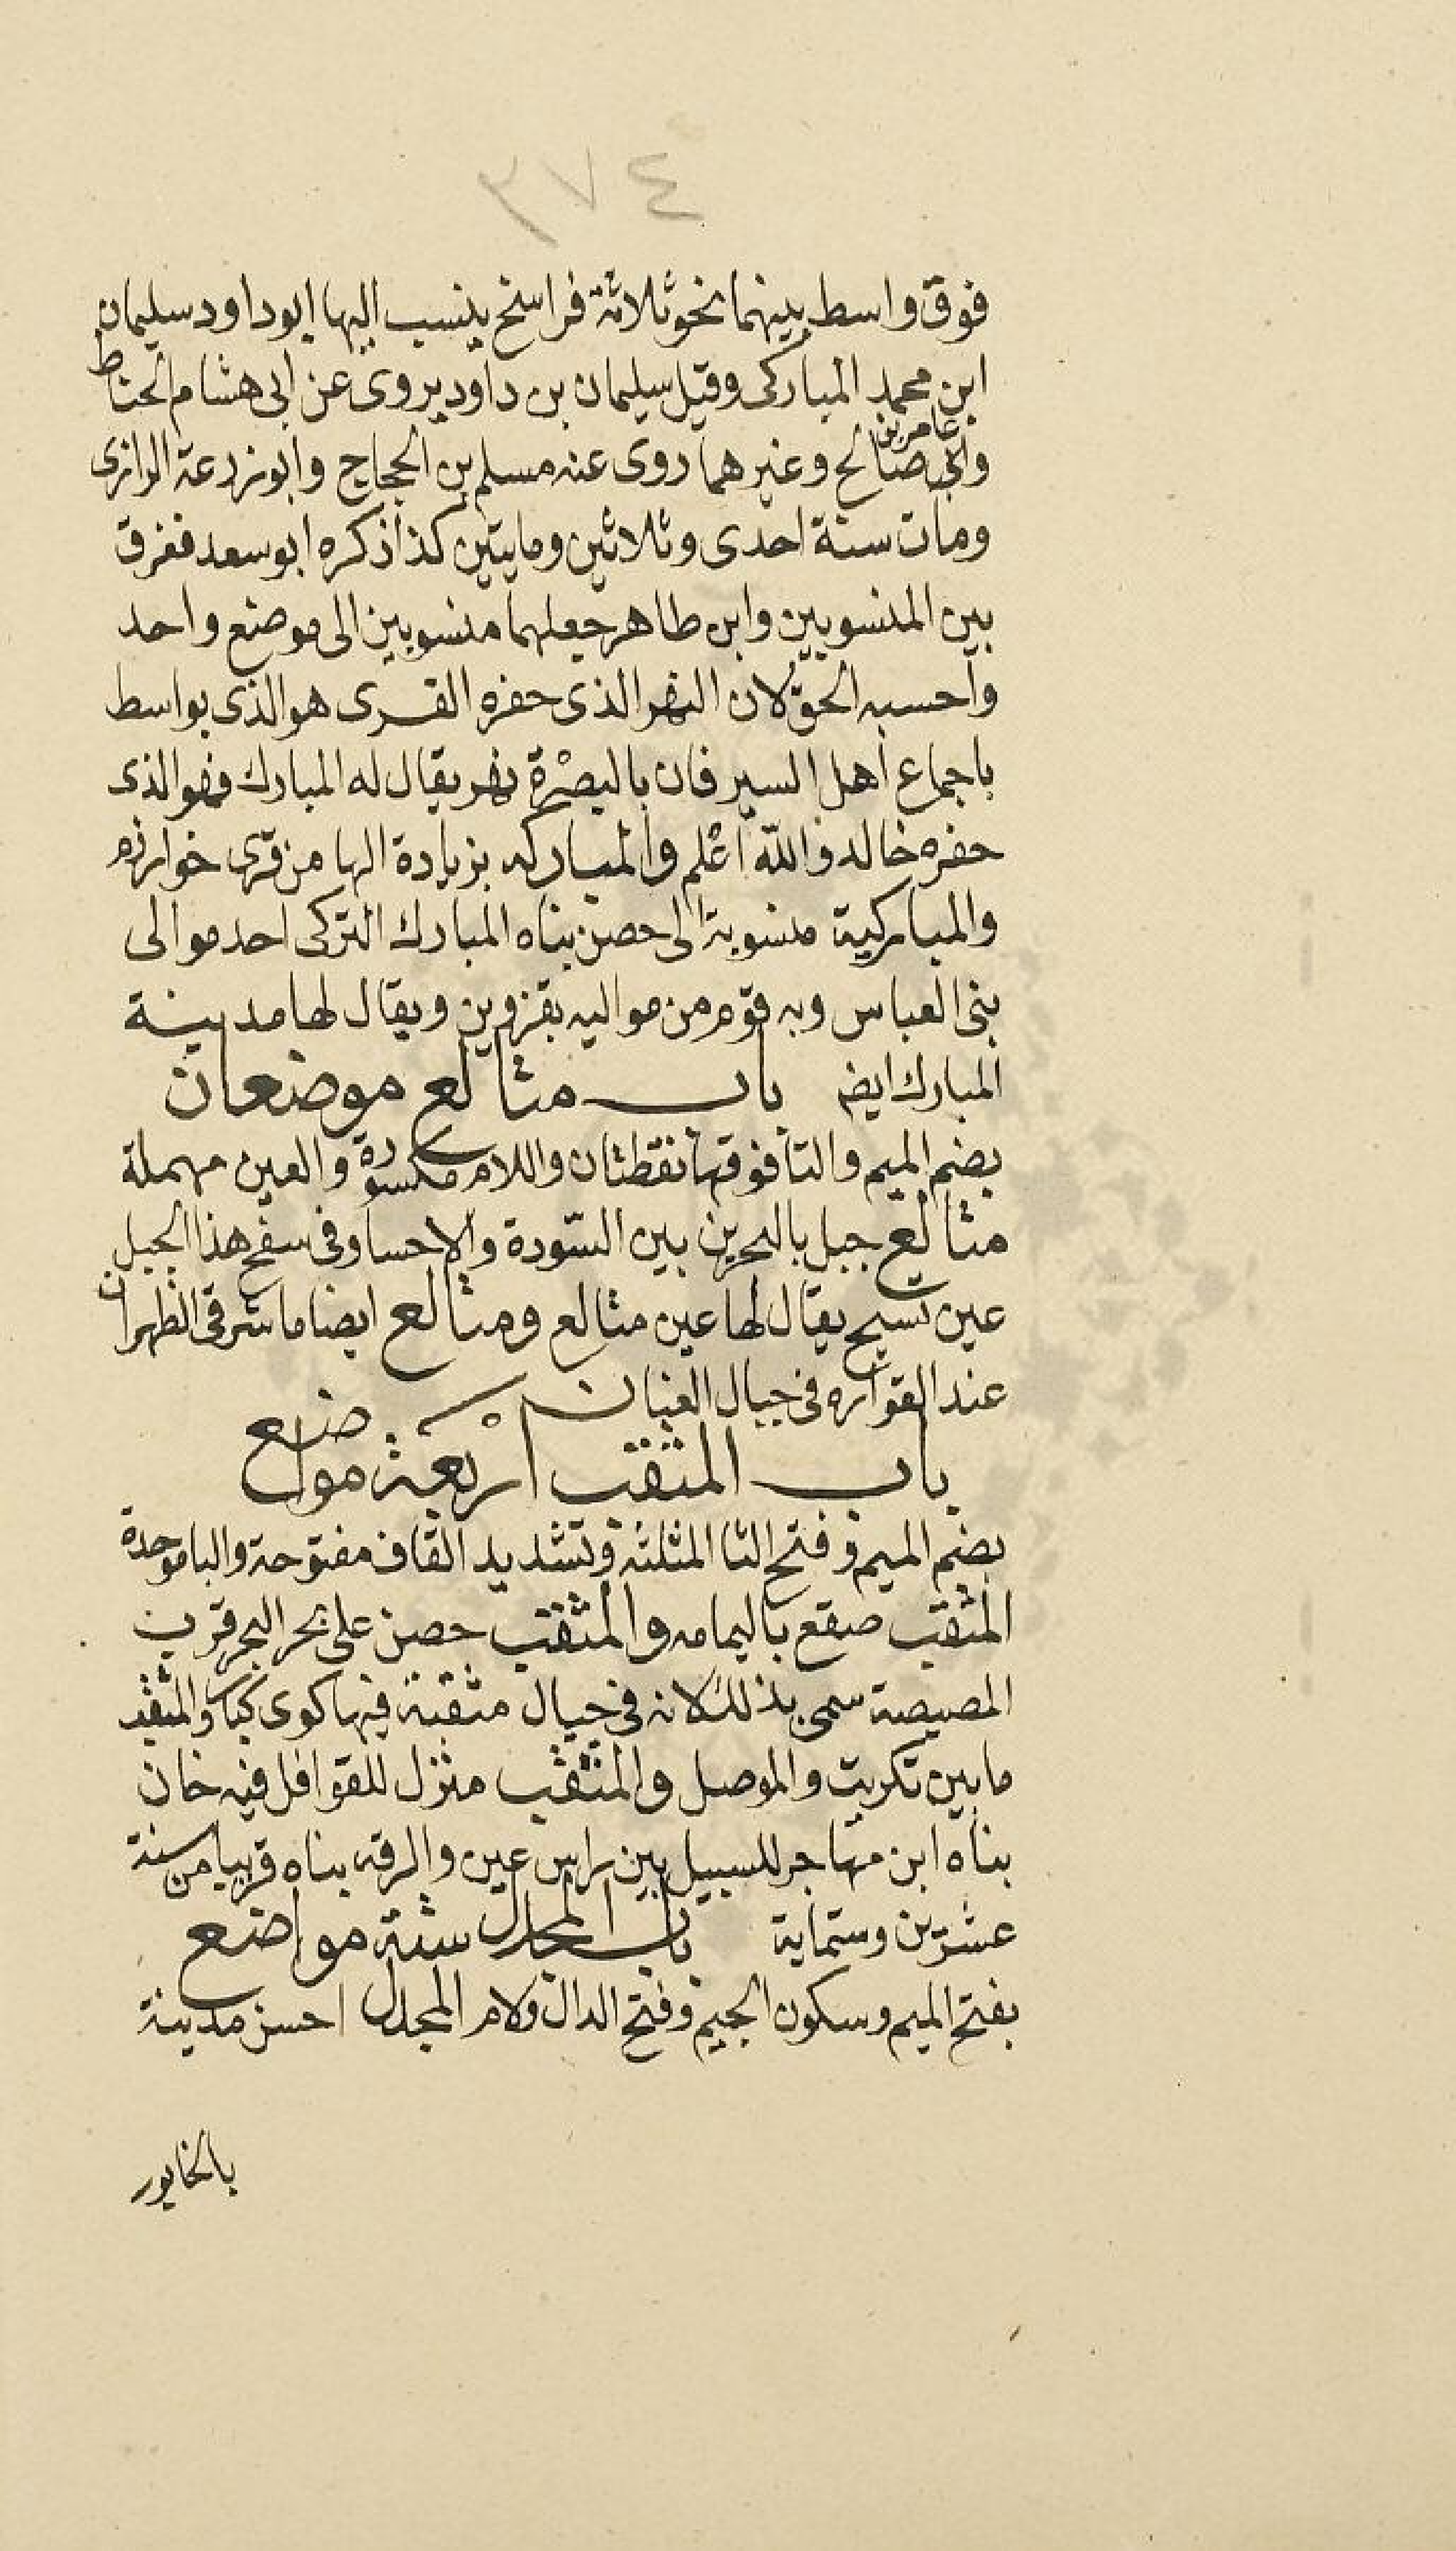 ٣٧٤
فوق واسط بينهما نحو ثلاثة فراسخ ينسب اليها ابو داود سليمان
ابن محمد المباركى وقيل سليمان بن داود يروى عن ابى هشام الحناط
وابى عامر بن صالح وغيرهما روى عنه مسلم بن الحجاج وابو زرعة الرازى
ومات سنة احدى وثلاثين ومايتين كذا ذكره ابو سعد ففرق
بين المنسوبين وابن طاهر جعلهما منسوبين الى موضع واحد
واحسبه الحق لان النهر الذى حفره القسرى هو الذى بواسط
باجماع اهل السير فان بالبصرة نهر يقال له المبارك فهو الذى
حفره خالد والله اعلم والمباركه بزيادة الها من قرى خوارزم
والمباركية منسوبة الى حصن بناه المبارك التركى احد موالى
بنى العباس وبه قوم من مواليه بقزوين ويقال لها مدينة
المبارك ايضم باب متالع موضعان
بضم الميم والتا فوقها نقطتان واللام مكسورة والعين مهملة
متالع جبل بالبحرين بين السودة والاحسا وفى سفح هذا الجبل
عين تسيح يقال لها عين متالع ومتالع ايضا ما شرقى الظهران
عند القواره فى جبال القنان
باب المثقب اربعة مواضع
بضم الميم وفتح الثا المثلثه وتشديد القاف مفتوحة والبا موحدة
المثقب صقع باليمامه والمثقب حصن على بحر البحر قرب
المصيصة سمى بذلك لانه فى جبال مثقبة فيها كوى كبار والمثقب
ما بين تكريت والموصل والمثقب منزل للقوافل فيه خان
بناه ابن مهاجر للسبيل بين راس عين والرقه بناه قريبا من سنة
عشرين وستماية باب المجدل ستة مواضع
بفتح الميم وسكون الجيم وفتح الدال ولام المجدل احسن مدينة
بالخابور